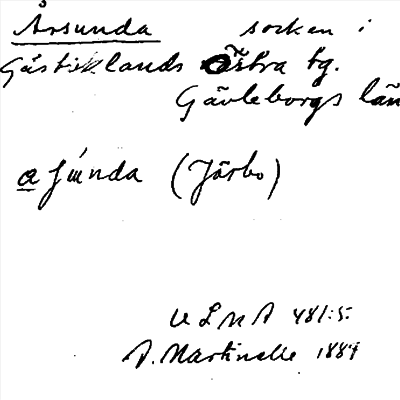 Årsunda socken i
Gästriklands Östra tg.
Gävleborgs län
a fúnda (Järbo)
ULMA 481:5
P. Martinelle 1889